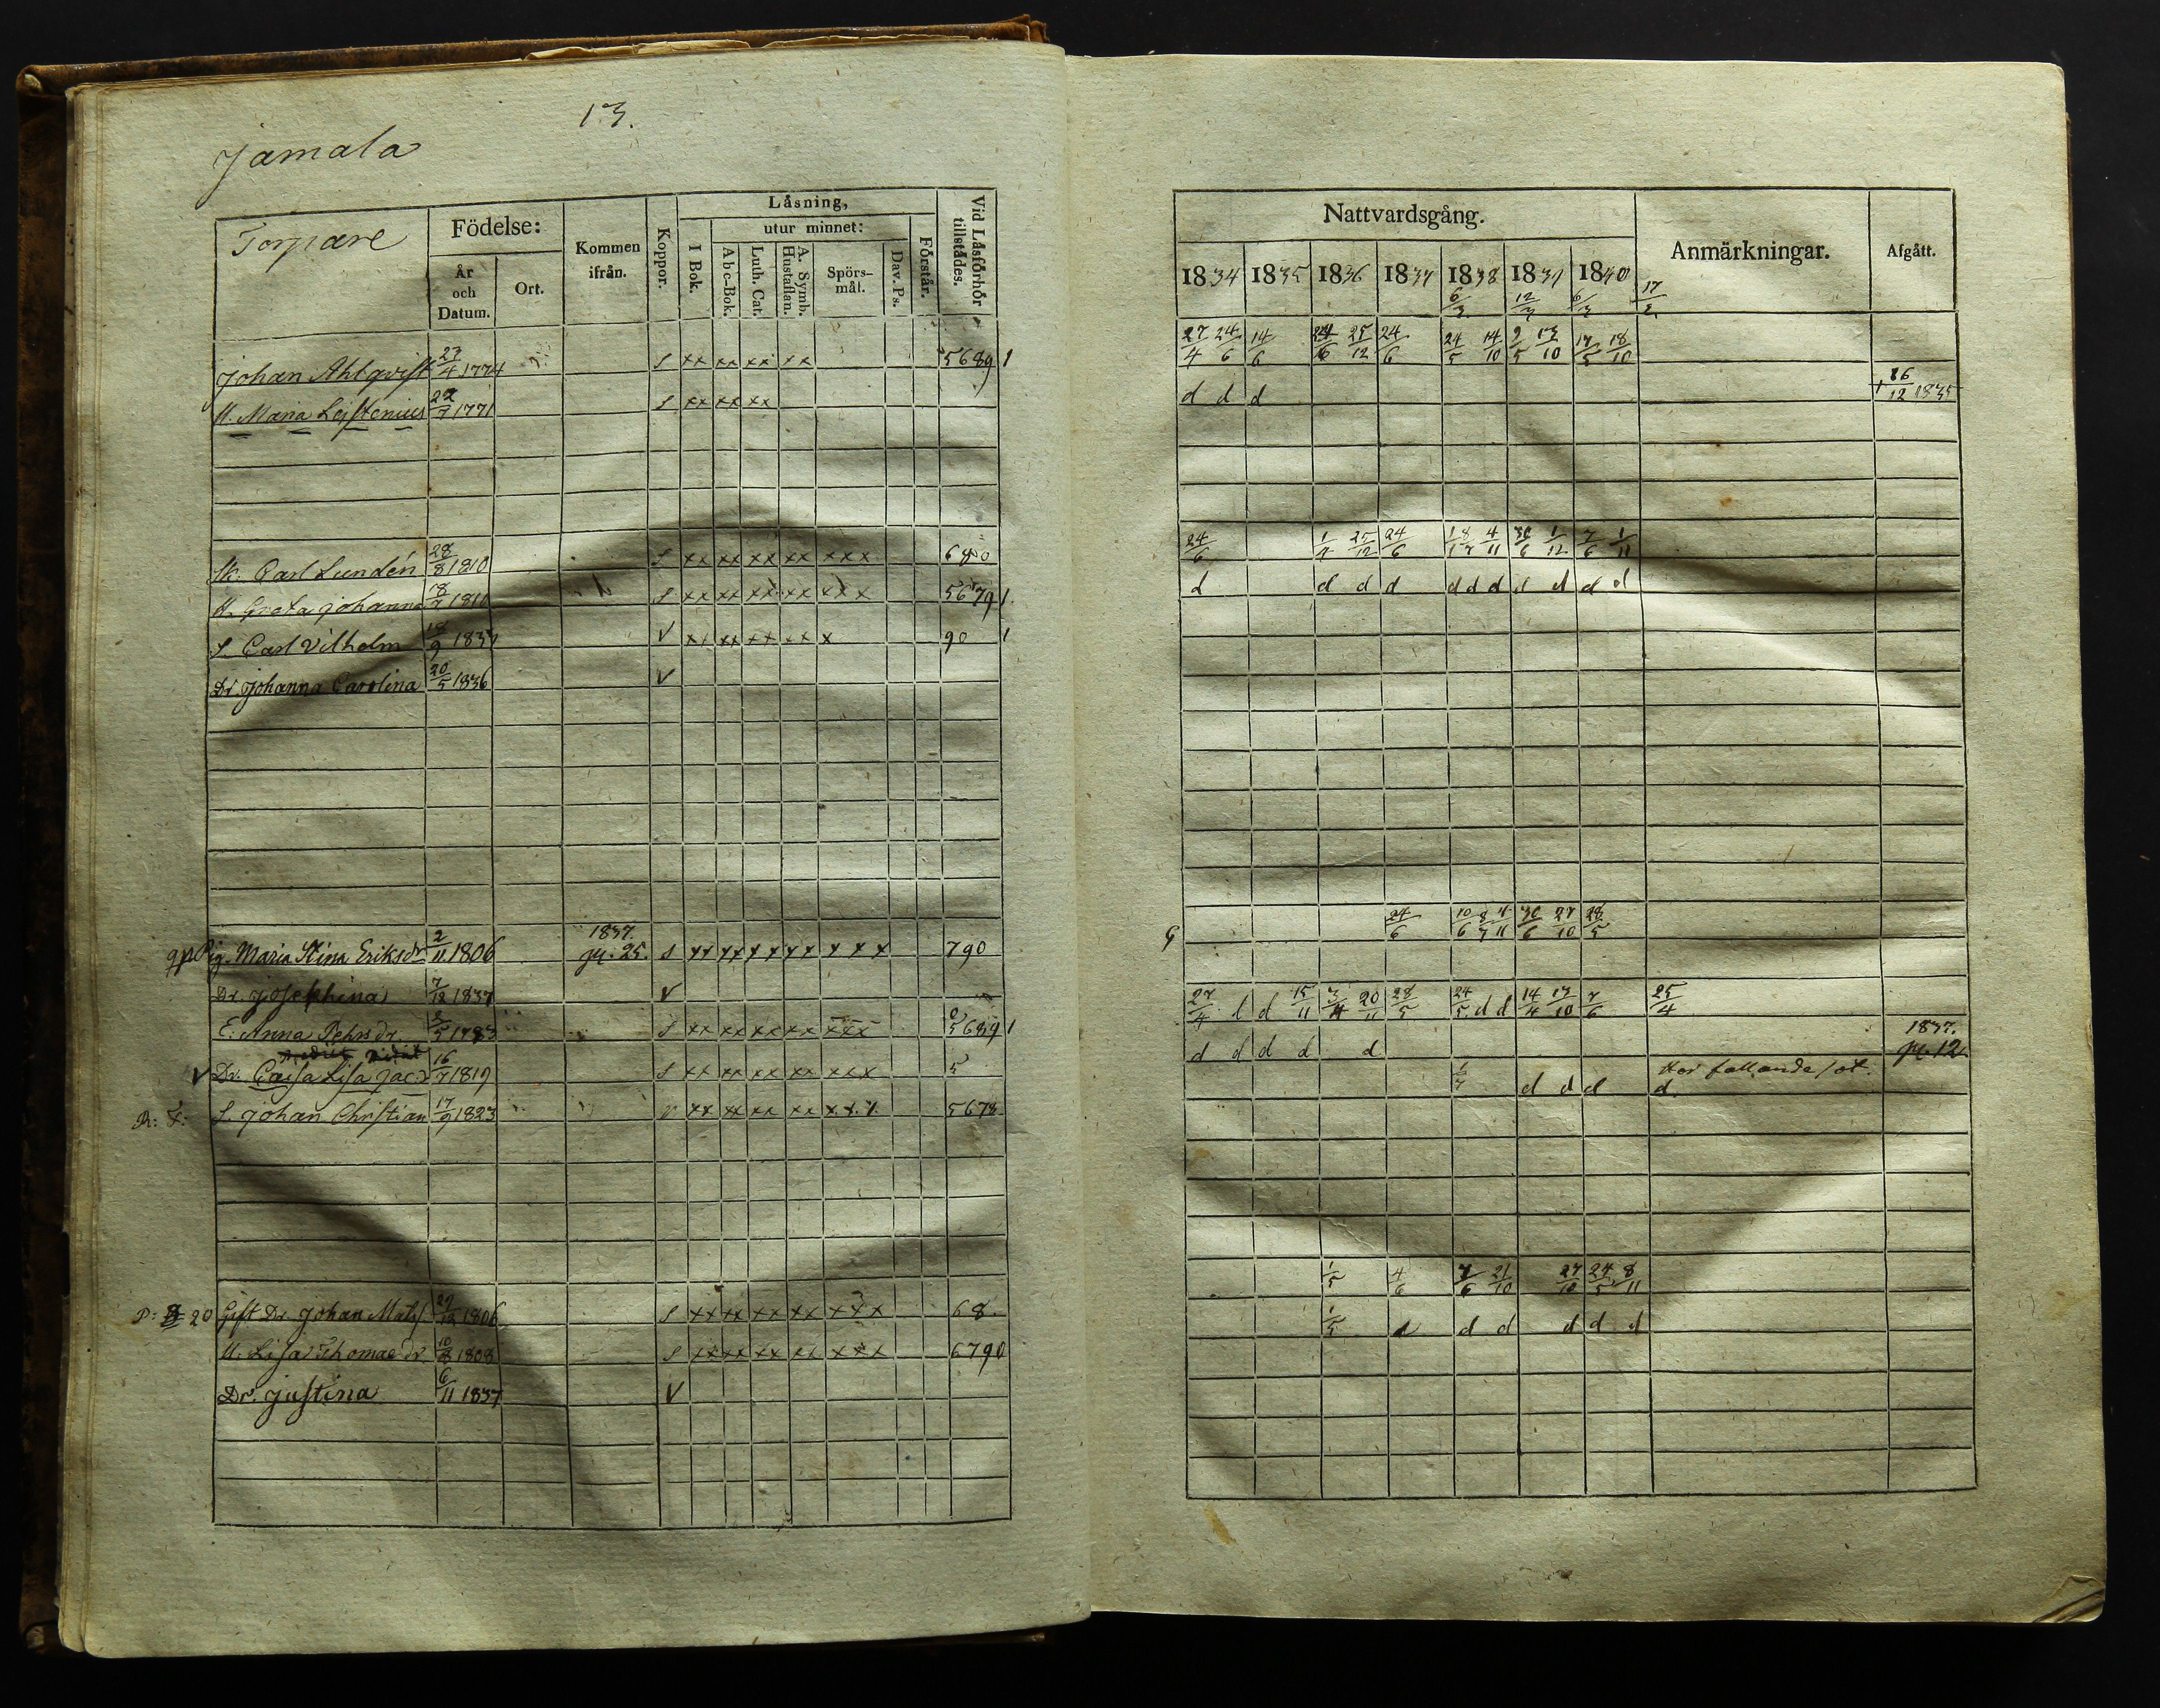 13.
Jamala
Torpare
Födelse:
År och Datum.
Ort.
Kommen ifrån.
Koppor.
Läsning,
I Bok.
utur minnet:
Abc-Bok.
Luth. Cat.
A. Symb. Hustaflan.
Spörs-mål.
Dav. Ps.
Förstår.
Vid Läsförhör tillstädes.
Johan Ahlqvist 23/4 1774 s xx xx xx xx 5689 1
H. Maria Leistenius 22/7 1771 s xx xx xx
Sk. Carl Lundén 28/8 1810 s xx xx xx xx xxx 680
H. Greta Johanna 18/7 1811 s xx xx xx xx xxx 5679 1
S. Carl Vilhelm 18/9 1834 v xx xx xx xx x 90 1
Dr. Johanna Carolina 20/5 1836 v
Pig. Maria Stina Eriksdr 2/11 1806 1837. pg. 25. s xx xx xx xx x x x 790
Dr. Josephina 7/12 1837 v
E. Anna Pehrsdr. 5/5 1783 s xx xx xx xx xxx 5689 1
v Dr. Caisa Lisa Jac:dr 16/7 1819 s xx xx xx xx xxx 5
S. Johan Christian 17/9 1823 v xx xx xx xx x x x 5678
20 Gift Dr. Johan Matss. 29/12 1806 s xx xx xx xx xxx 68.
H. Lisa Thomaedr. 10/8 1808 s xx xx xx xx xxx 6790
Dr. Justina 6/11 1837 v
Nattvardsgång.
Anmärkningar.
Afgått.
1834 1835 1836 1837 1838 1839 1840
6/3 12/3 6/3 17/3
27/4 24/6 14/6 24/6 25/12 24/6 24/5 14/10 9/5 13/10 17/5 18/10
d d d † 16/12 1835
24/6 1/4 25/12 24/6 18/17 4/11 30/6 1/12 7/6 1/11
d d d d d d d d d d d
G 24/6 10/6 8/7 4/11 30/6 27/10 28/5
27/4 d d 15/11 3/4 20/11 28/5 24/5 d d 14/4 13/10 7/6 25/4
d d d d d 1837. pg. 12.
1/7 d d d Har fallande sot. d.
1/5 4/6 7/6 21/10 27/10 24/5 8/11
1/5 d d d d d d